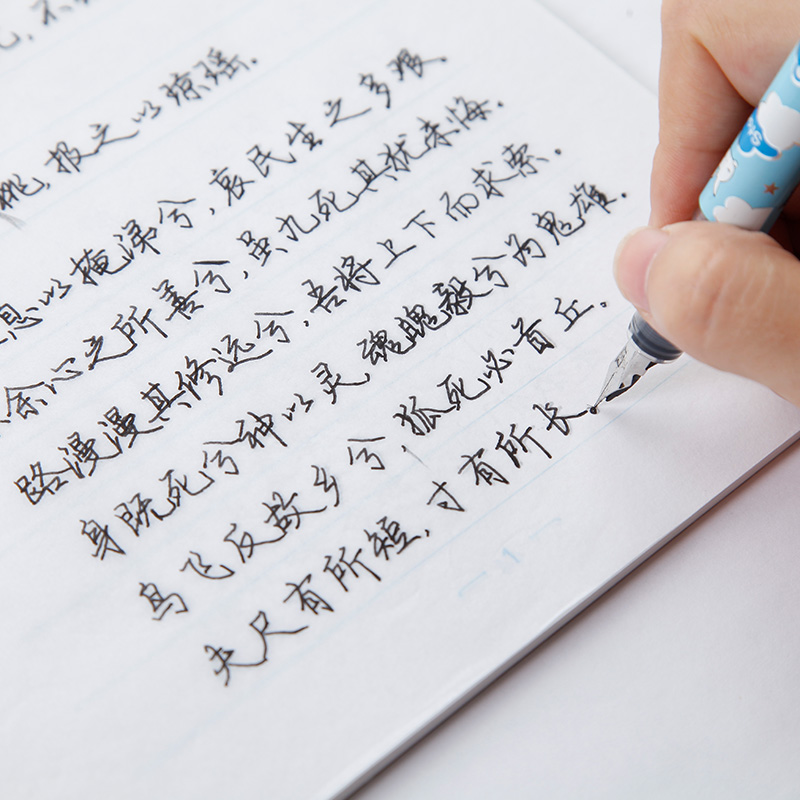 桃,报之以琼瑶.
息以掩涕兮,哀民生之多艰.
余心之所善兮,虽九死其犹未悔.
路漫漫其修远兮,吾将上下而求索.
身既死兮神以灵,魂魄毅兮为鬼雄.
鸟飞反故乡兮,狐死必首丘.
夫尺有所短,寸有所长.